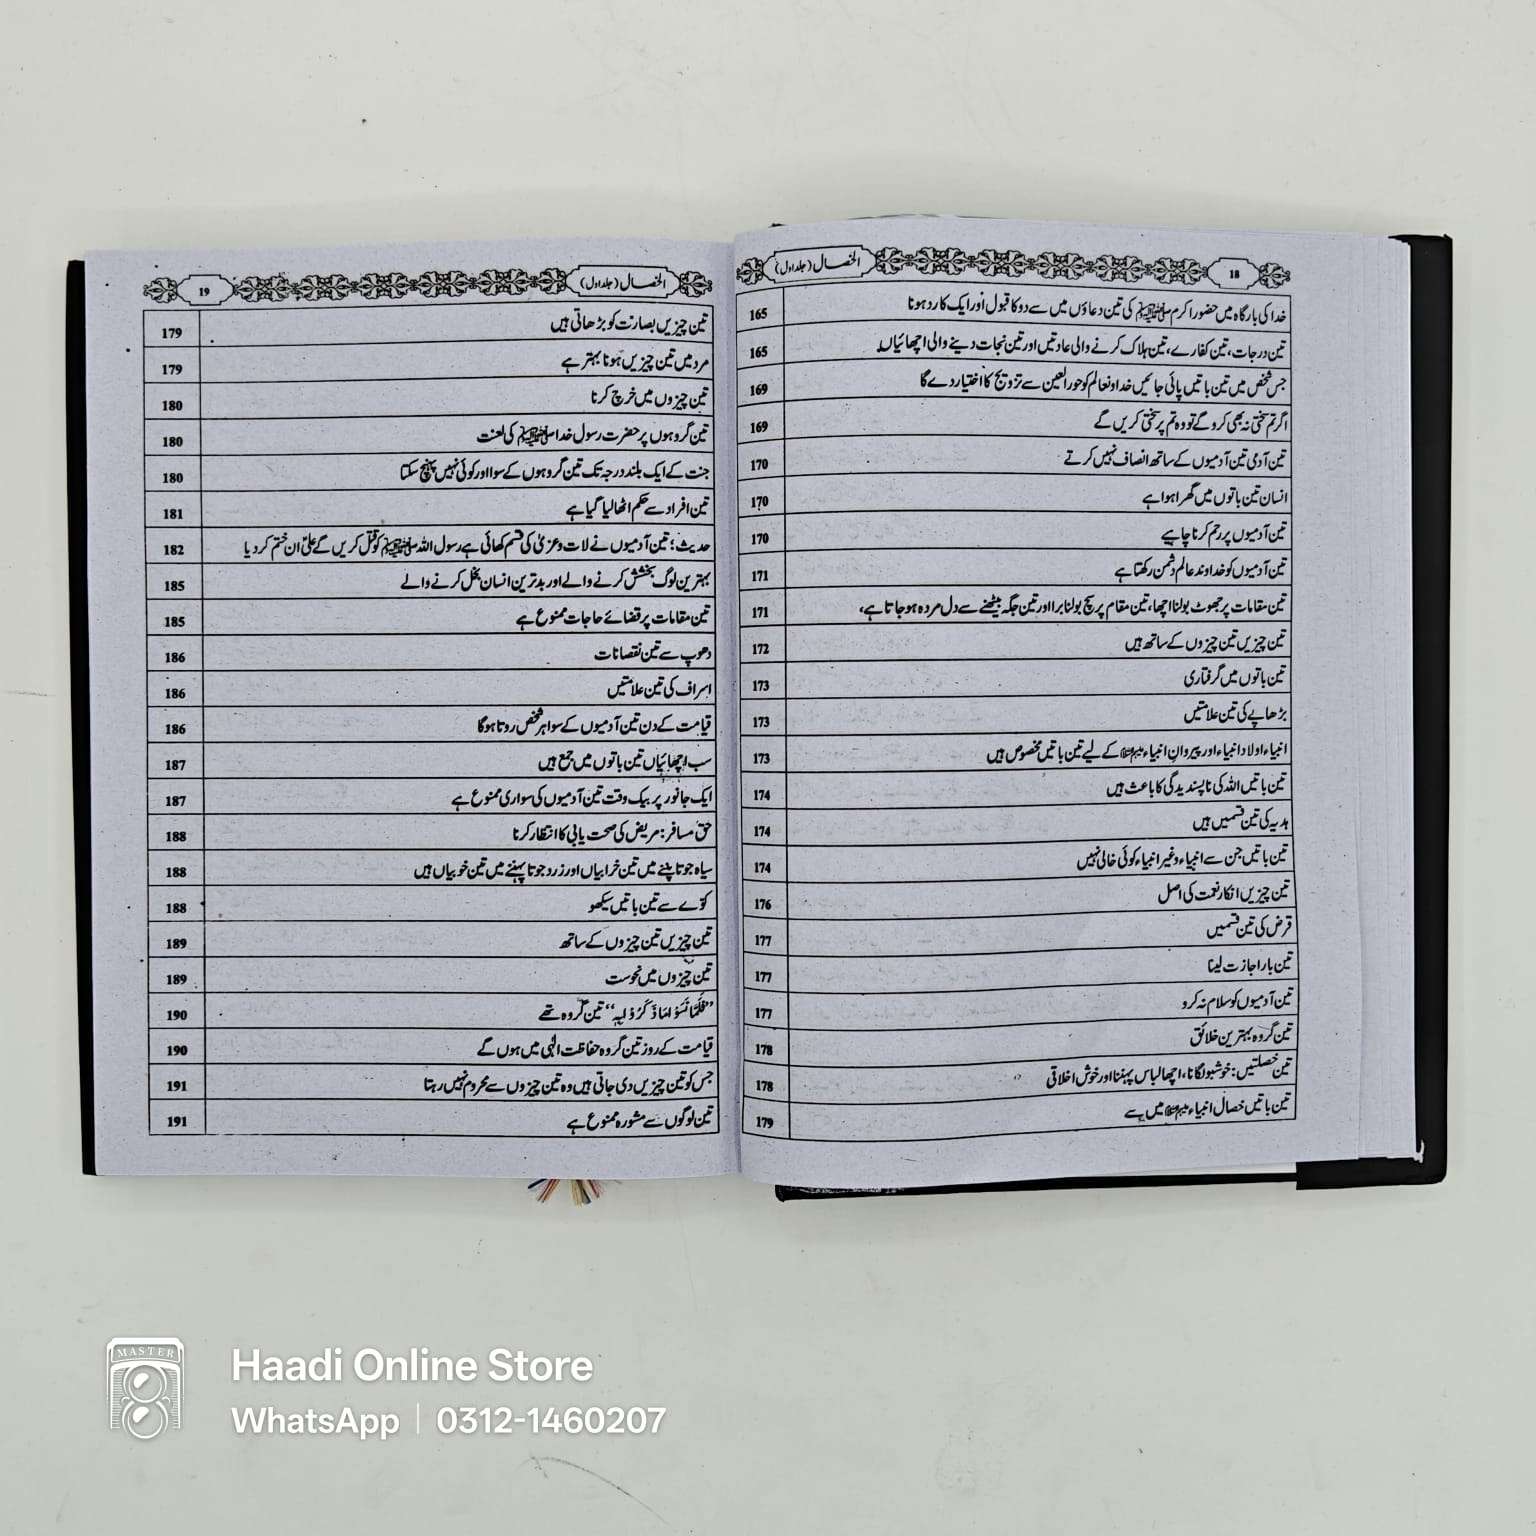 18 الخصال (جلد اول)
خدا کی بارگاہ میں حضور اکرم ﷺ کی تین دعاؤں میں سے دو کا قبول اور ایک کا رد ہونا 165
تین درجات، تین کفارے، تین ہلاک کرنے والی عادتیں اور تین نجات دینے والی اچھائیاں 165
جس شخص میں تین باتیں پائی جائیں خداوند عالم کو حورالعین سے تزویج کا اختیار دے گا 169
اگر تم سختی نہ بھی کرو گے تو وہ تم پر سختی کریں گے 169
تین آدمی تین آدمیوں کے ساتھ انصاف نہیں کرتے 170
انسان تین باتوں میں گھرا ہوا ہے 170
تین آدمیوں پر رحم کرنا چاہیے 170
تین آدمیوں کو خداوند عالم دشمن رکھتا ہے 171
تین مقامات پر جھوٹ بولنا اچھا، تین مقام پر سچ بولنا برا اور تین جگہ بیٹھنے سے دل مردہ ہو جاتا ہے، 171
تین چیزیں تین چیزوں کے ساتھ ہیں 172
تین باتوں میں گرفتاری 173
بڑھاپے کی تین علامتیں 173
انبیاء اولاد انبیاء اور پیروانِ انبیاء کے لیے تین باتیں مخصوص ہیں 173
تین باتیں اللہ کی ناپسندیدگی کا باعث ہیں 174
ہدیہ کی تین قسمیں ہیں 174
تین باتیں جن سے انبیاء و غیر انبیاء کوئی خالی نہیں 174
تین چیزیں انکار نعمت کی اصل 176
قرض کی تین قسمیں 177
تین بار اجازت لینا 177
تین آدمیوں کو سلام نہ کرو 177
تین گروہ بہترین خلائق 178
تین خصلتیں: خوشبو لگانا، اچھا لباس پہننا اور خوش اخلاقی 178
تین باتیں خصال انبیاء میں سے 179
الخصال (جلد اول) 19
تین چیزیں بصارت کو بڑھاتی ہیں 179
مرد میں تین چیزیں ہونا بہتر ہے 179
تین چیزوں میں خرچ کرنا 180
تین گروہوں پر حضرت رسول خدا ﷺ کی لعنت 180
جنت کے ایک بلند درجہ تک تین گروہوں کے سوا اور کوئی نہیں پہنچ سکتا 180
تین افراد سے حکم اٹھا لیا گیا ہے 181
حدیث: تین آدمیوں نے لات و عزیٰ کی قسم کھائی ہے رسول اللہ ﷺ کو قتل کریں گے علیؑ ان ختم کر دیا 182
بہترین لوگ بخشش کرنے والے اور بدترین انسان بخل کرنے والے 185
تین مقامات پر قضائے حاجات ممنوع ہے 185
دھوپ سے تین نقصانات 186
اسراف کی تین علامتیں 186
قیامت کے دن تین آدمیوں کے سوا ہر شخص روتا ہوگا 186
سب اچھائیاں تین باتوں میں جمع ہیں 187
ایک جانور پر بیک وقت تین آدمیوں کی سواری ممنوع ہے 187
حق مسافر: مریض کی صحت یابی کا انتظار کرنا 188
سیاہ جوتا پننے میں تین خرابیاں اور زرد جوتا پہننے میں تین خوبیاں ہیں 188
کوّے سے تین باتیں سیکھو 188
تین چیزیں تین چیزوں کے ساتھ 189
تین چیزوں میں نحوست 189
"فَلَمَّا نَسُوْا مَا ذُکِّرُوْا بِہٖ" تین گروہ تھے 190
قیامت کے روز تین گروہ حفاظت الٰہی میں ہوں گے 190
جس کو تین چیزیں دی جاتی ہیں وہ تین چیزوں سے محروم نہیں رہتا 191
تین لوگوں سے مشورہ ممنوع ہے 191
MASTER
Haadi Online Store
WhatsApp | 0312-1460207